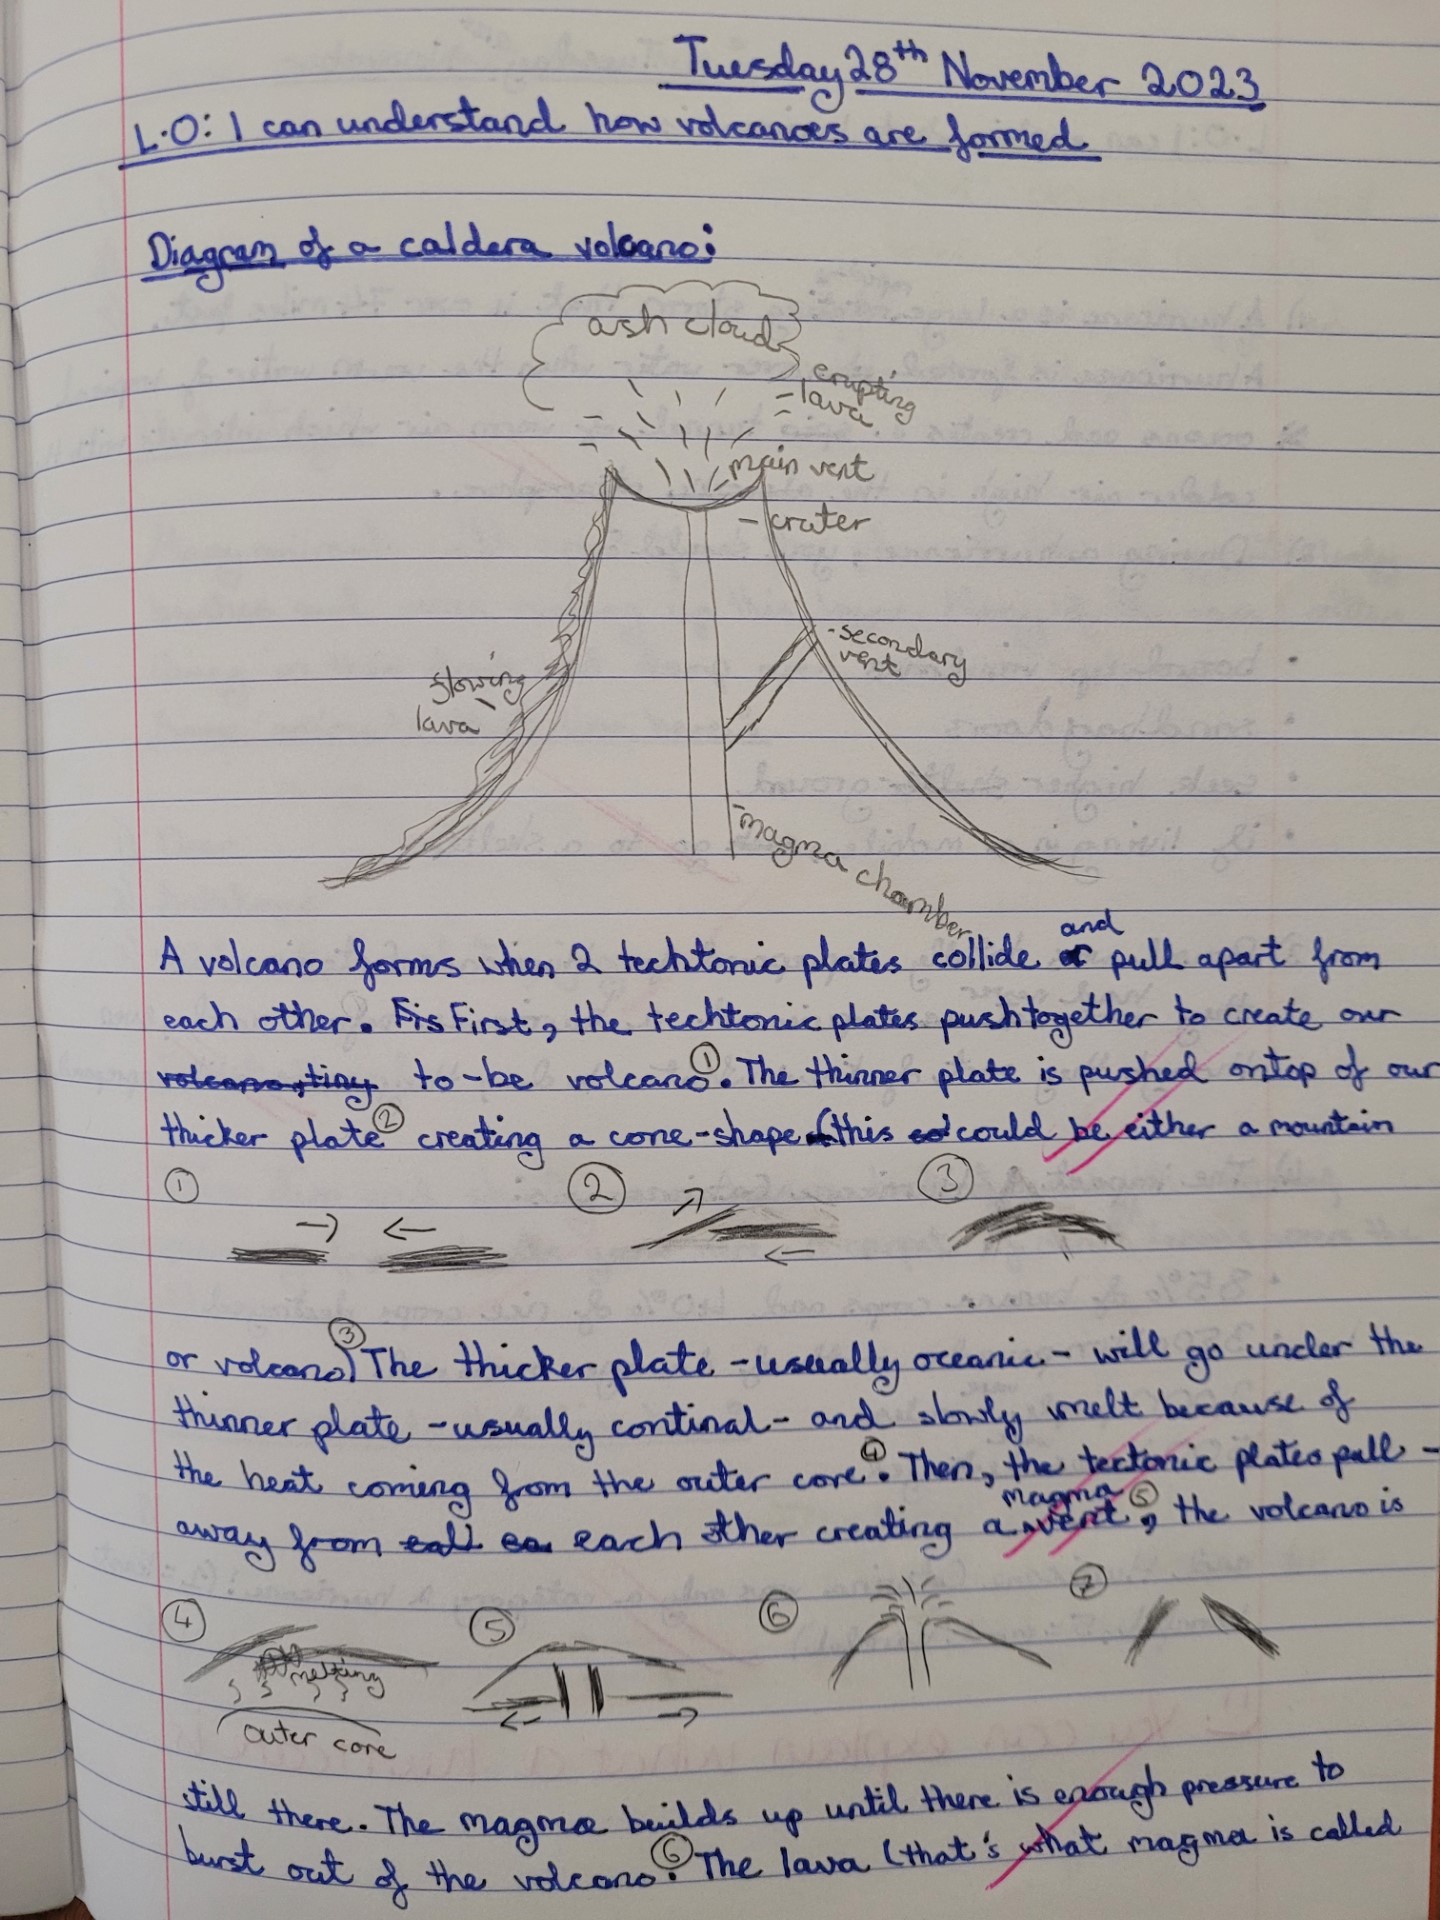 Tuesday 28th November 2023
L.O: I can understand how volcanoes are formed
Diagram of a caldera volcano:
ash cloud
erupting
lava
main vent
crater
secondary
vent
flowing
lava
magma chamber
and
A volcano forms when 2 techtonic plates collide or pull apart from
each other. Fis First, the techtonic plates push together to create our
volcano, tiny to-be volcano①. The thinner plate is pushed ontop of our
thicker plate② creating a cone-shape (this could be either a mountain
① ② ③
or volcano)③ The thicker plate - usually oceanic - will go under the
thinner plate - usually continal - and slowly melt because of
the heat coming from the outer core④. Then, the tectonic plates pull -
magma
away from each other creating a vent⑤, the volcano is
④ ⑤ ⑥ ⑦
melting
outer core
still there. The magma builds up until there is enough pressure to
burst out of the volcano⑥. The lava (that's what magma is called